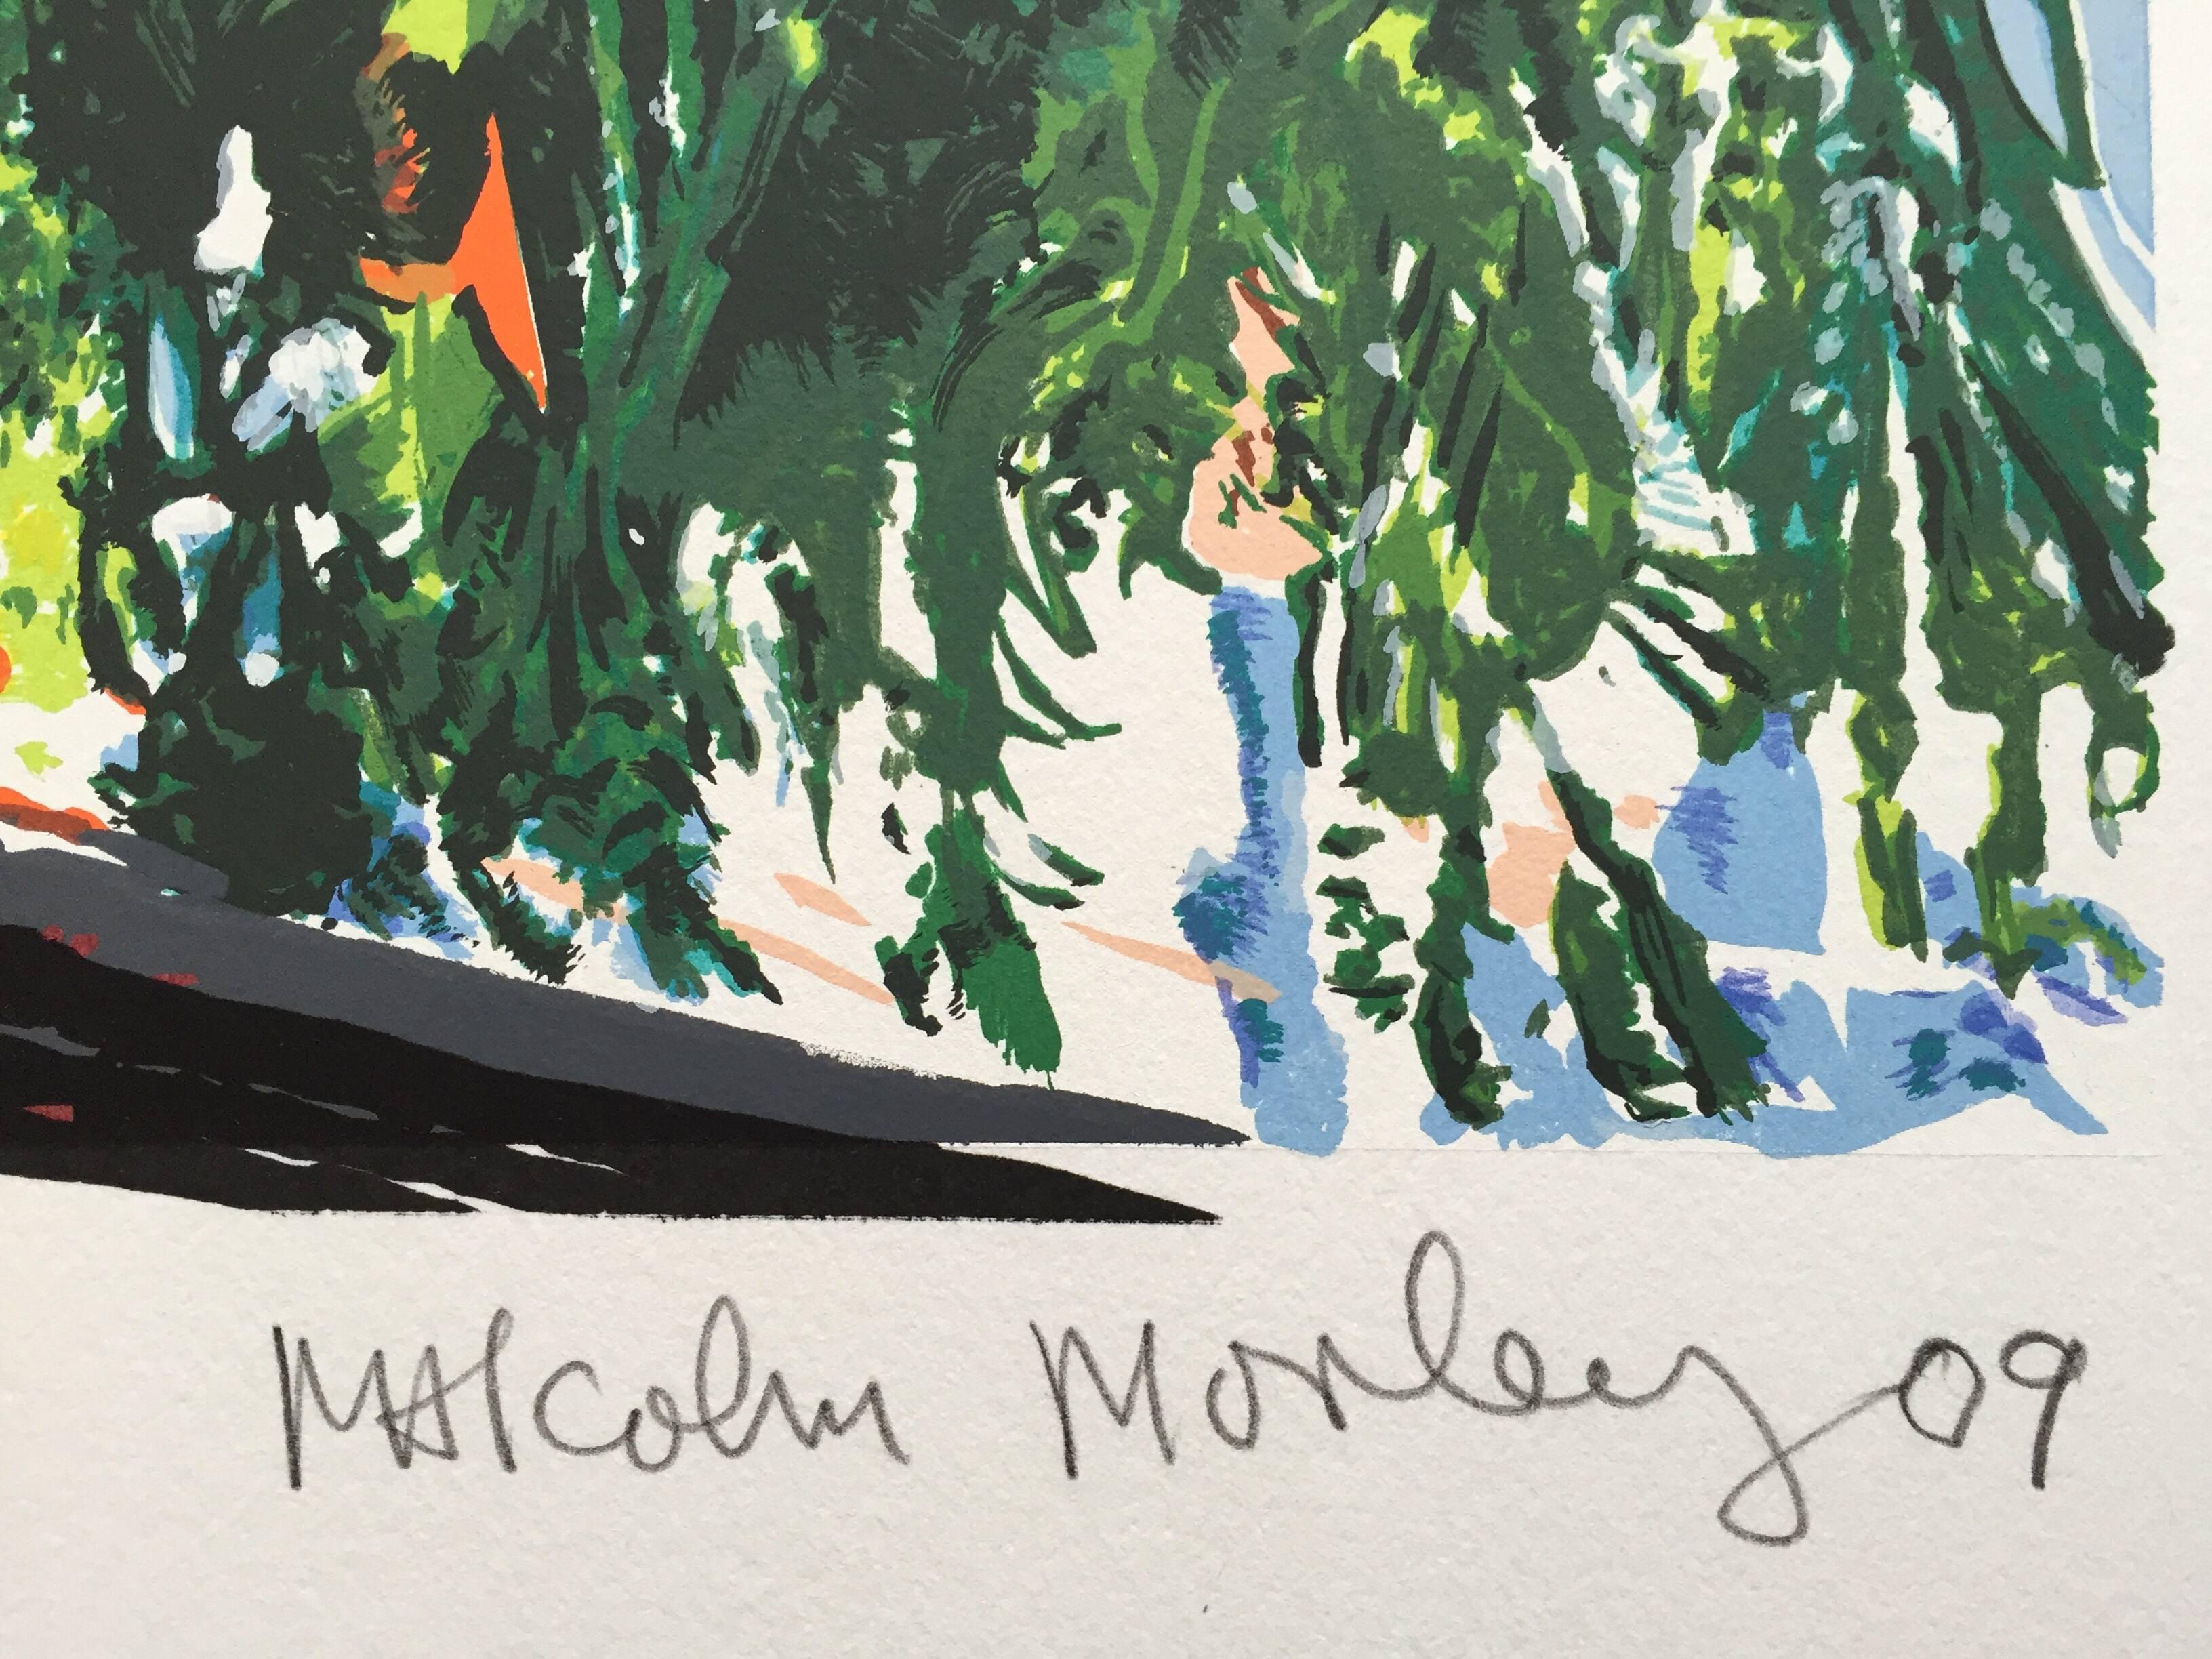 Malcolm Morley 09